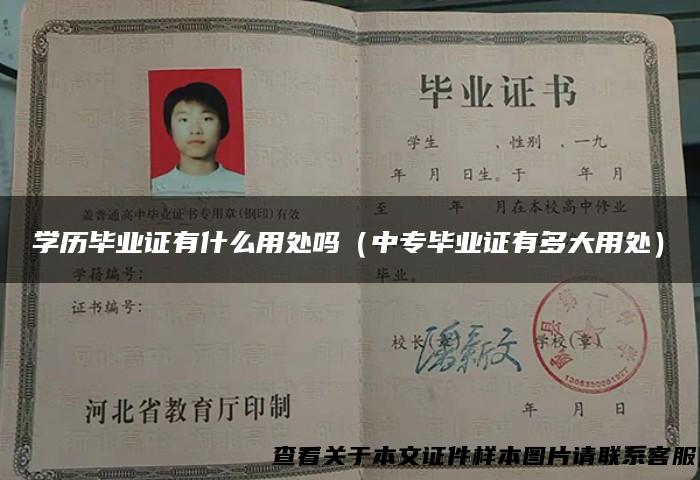 毕业证书
学生　　,性别　,一九
年　月　日生。于　　年　月
盖普通高中毕业证书专用章(钢印)有效
至　　年　月在本校高中修业
学历毕业证有什么用处吗（中专毕业证有多大用处）
学籍编号:
毕业。
证书编号:
校长(章)
学校(章)
河北省教育厅印制
年　月　日
查看关于本文证件样本图片请联系客服